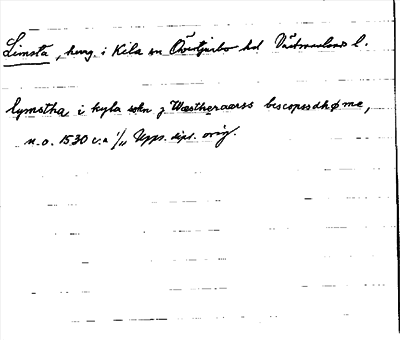 Limsta, herrg. i Kila sn Övertjurbo hd Västmanlands l.
lymstha i kyla sokn j Wæstheraarss biscopssdhøme,
u.o. 1530 v.a 1/11 Upps. dipl. orig.